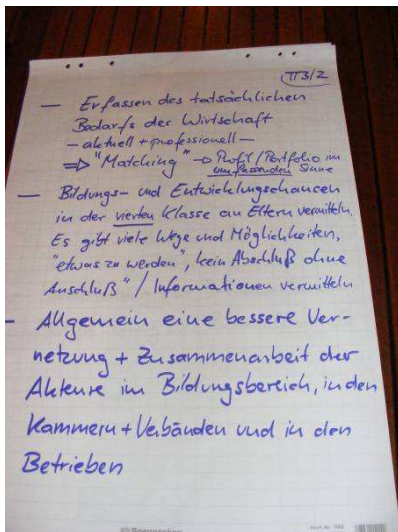 TT3/2
— Erfassen des tatsächlichen
Bedarfs der Wirtschaft
— aktuell + professionell —
⇒ "Matching" → Profil/Portfolio im
umfassenden Sinne
— Bildungs- und Entwicklungschancen
in der vierten Klasse an Eltern vermitteln.
Es gibt viele Wege und Möglichkeiten,
"etwas zu werden", kein Abschluß ohne
Anschluß" / Informationen vermitteln
- Allgemein eine bessere Ver-
netzung + Zusammenarbeit der
Akteure im Bildungsbereich, in den
Kammern + Verbänden und in den
Betrieben